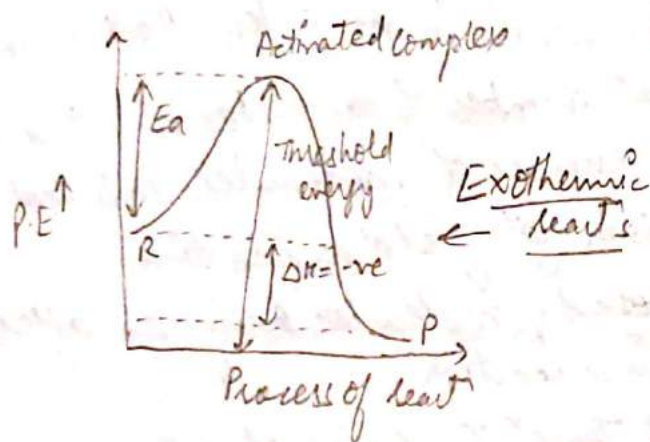 Activated complex
Ea
Threshold
energy
P.E ↑
Exothermic
react^s
R
ΔH = -ve
P
Process of react^n